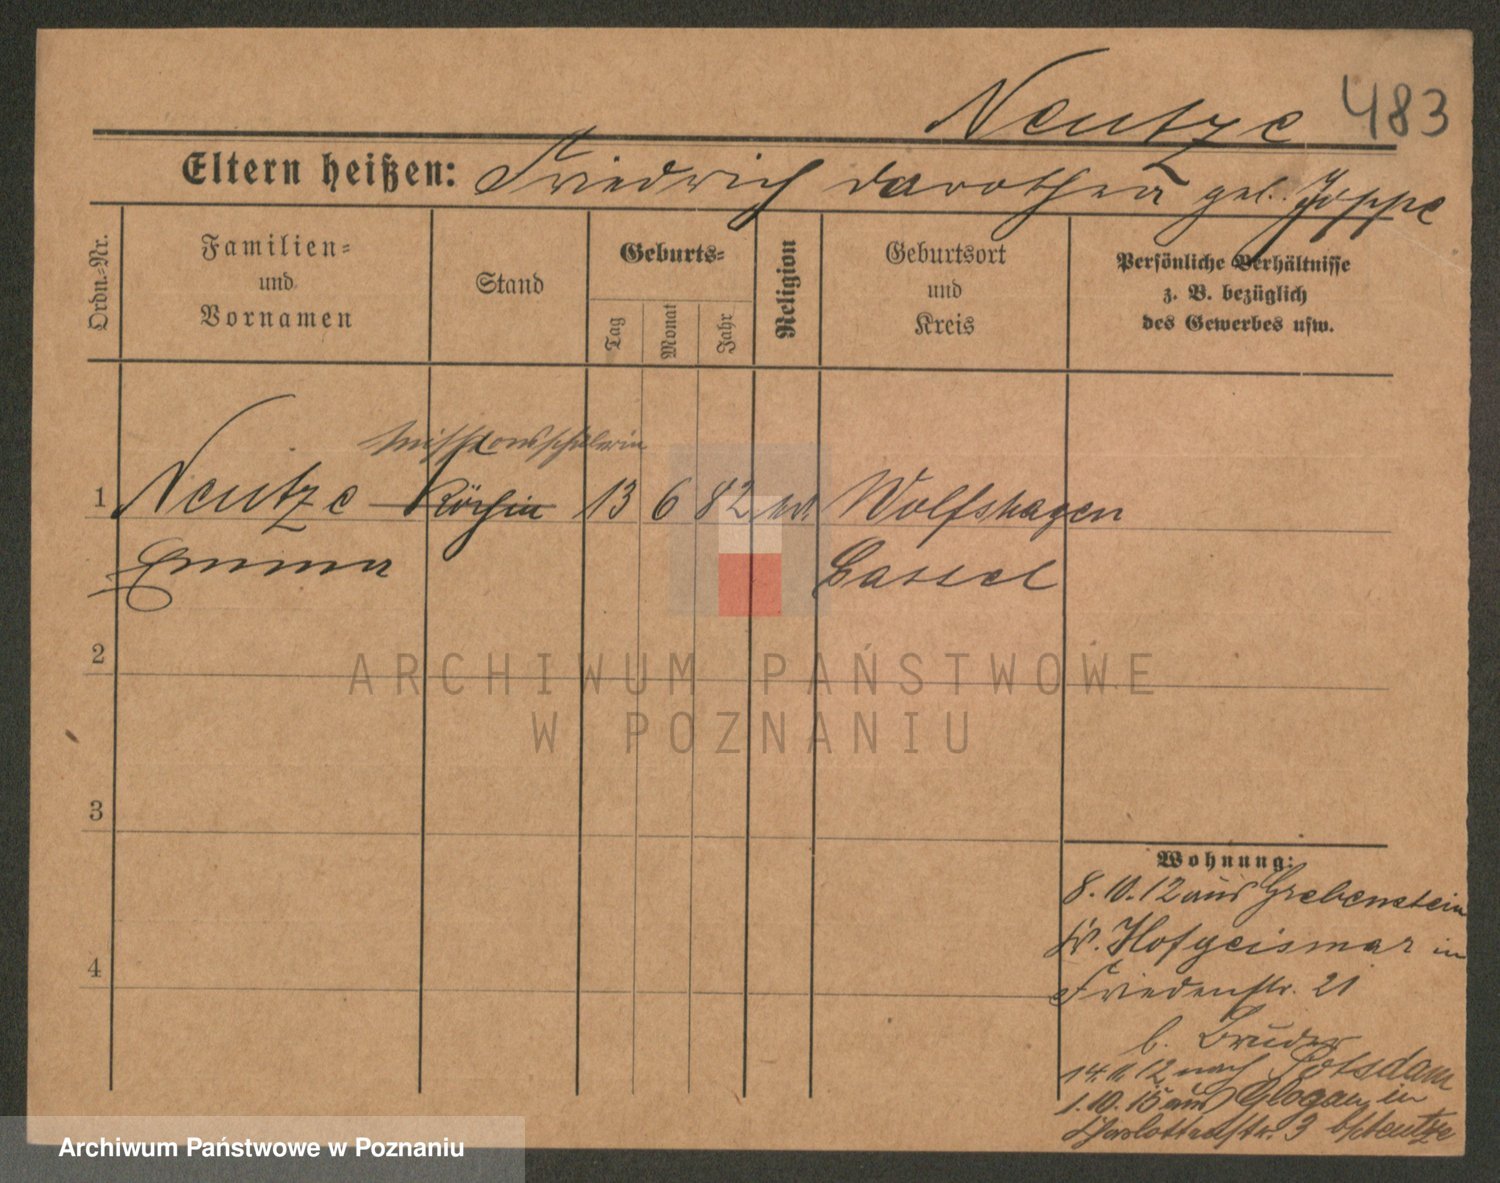 Neutze 483
Eltern heißen: Friedrich Dorothea geb. Joppe
Ordn.-Nr.
Familien-
und
Vornamen
Stand
Geburts-
Tag
Monat
Jahr
Religion
Geburtsort
und
Kreis
Persönliche Verhältnisse
z. B. bezüglich
des Gewerbes usw.
Missionsschülerin
1 Neutze Köchin 13 6 82 ev. Wolfshagen
Emma Cassel
2
3
4
Wohnung:
8.10.12 aus Grebenstein
Kr. Hofgeismar in
Friedenstr. 21
b. Bruder
14.11.12 nach Potsdam
1.10.15 aus Glogau in
Charlottenstr. 3 b/Neutze
ARCHIWUM PAŃSTWOWE
W POZNANIU
Archiwum Państwowe w Poznaniu